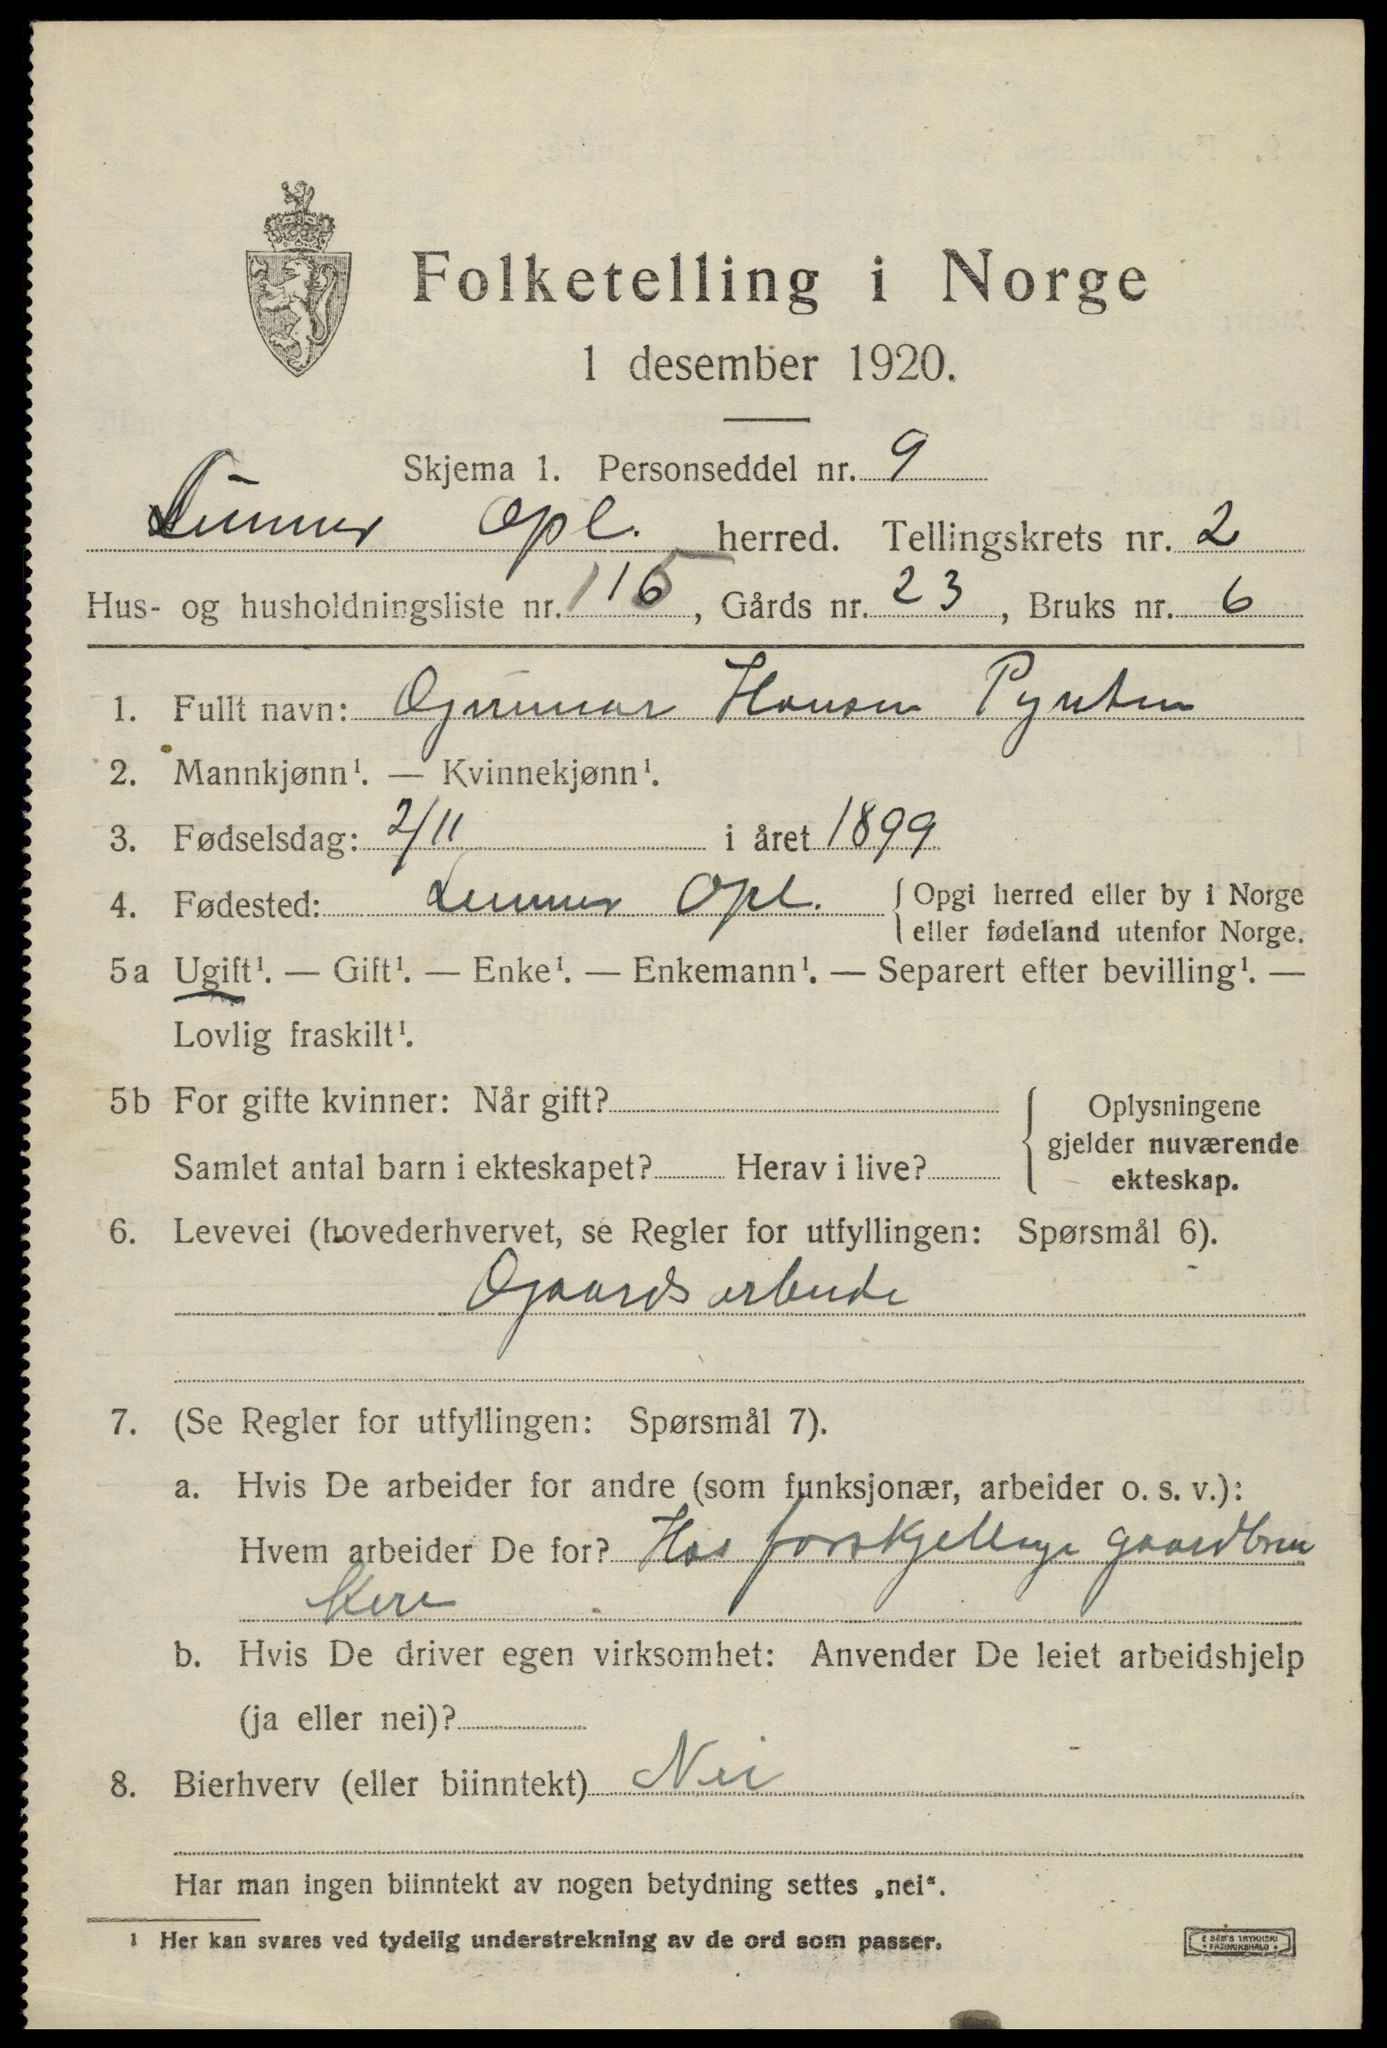 Folketelling i Norge
1 desember 1920.
Skjema 1. Personseddel nr. 9
Lunner Opl. herred. Tellingskrets nr. 2
Hus- og husholdningsliste nr. 115, Gårds nr. 23, Bruks nr. 6
1. Fullt navn: Gunnar Hansen Pynten
2. Mannkjønn¹. — Kvinnekjønn¹.
3. Fødselsdag: 2/11 i året 1899
4. Fødested: Lunner Opl. { Opgi herred eller by i Norge
eller fødeland utenfor Norge.
5a Ugift¹. — Gift¹. — Enke¹. — Enkemann¹. — Separert efter bevilling¹. —
Lovlig fraskilt¹.
5b For gifte kvinner: Når gift?
Samlet antal barn i ekteskapet? Herav i live?
Oplysningene
gjelder nuværende
ekteskap.
6. Levevei (hovederhvervet, se Regler for utfyllingen: Spørsmål 6).
Gaardsarbeide
7. (Se Regler for utfyllingen: Spørsmål 7).
a. Hvis De arbeider for andre (som funksjonær, arbeider o. s. v.):
Hvem arbeider De for? Hos forskjellige gaardbru
kere
b. Hvis De driver egen virksomhet: Anvender De leiet arbeidshjelp
(ja eller nei)?
8. Bierhverv (eller biinntekt) Nei
Har man ingen biinntekt av nogen betydning settes „nei“.
1 Her kan svares ved tydelig understrekning av de ord som passer.
E SEM'S TRYKKERI
FREDRIKSHALD